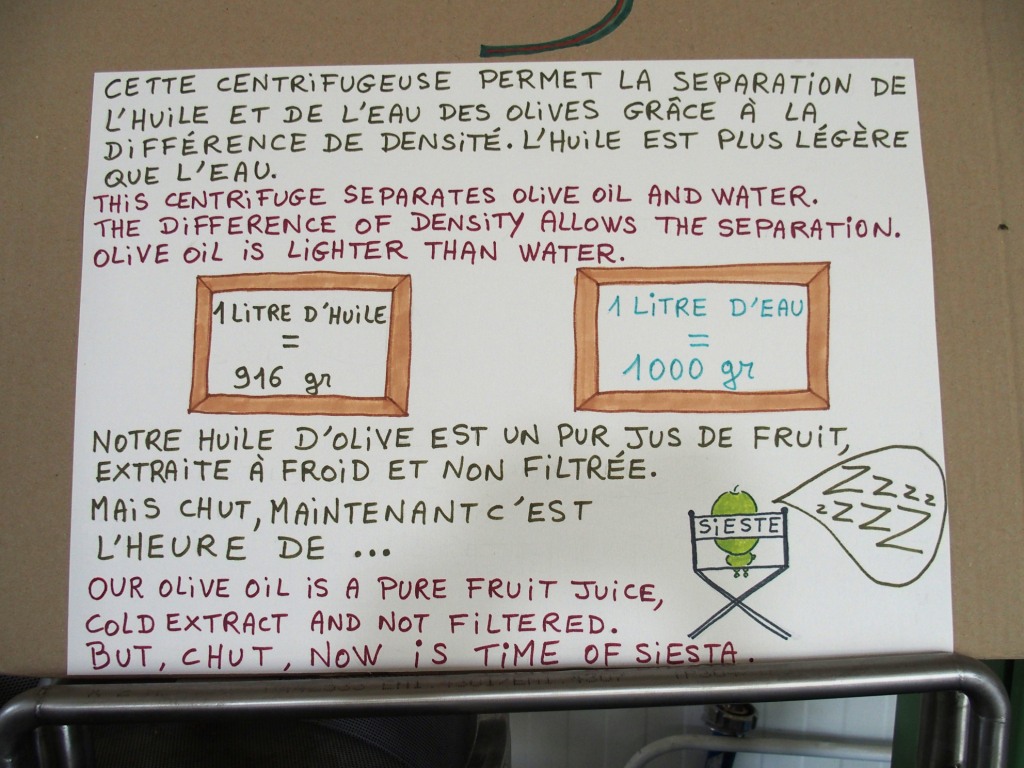 CETTE CENTRIFUGEUSE PERMET LA SEPARATION DE
L'HUILE ET DE L'EAU DES OLIVES GRÂCE À LA
DIFFÉRENCE DE DENSITÉ. L'HUILE EST PLUS LÉGÈRE
QUE L'EAU.
THIS CENTRIFUGE SEPARATES OLIVE OIL AND WATER.
THE DIFFERENCE OF DENSITY ALLOWS THE SEPARATION.
OLIVE OIL IS LIGHTER THAN WATER.
1 LITRE D'HUILE
=
916 gr
1 LITRE D'EAU
=
1000 gr
NOTRE HUILE D'OLIVE EST UN PUR JUS DE FRUIT,
EXTRAITE À FROID ET NON FILTRÉE.
MAIS CHUT, MAINTENANT C'EST
L'HEURE DE ...
SIESTE
ZZZZ
ZZZZZ
OUR OLIVE OIL IS A PURE FRUIT JUICE,
COLD EXTRACT AND NOT FILTERED.
BUT, CHUT, NOW IS TIME OF SIESTA.